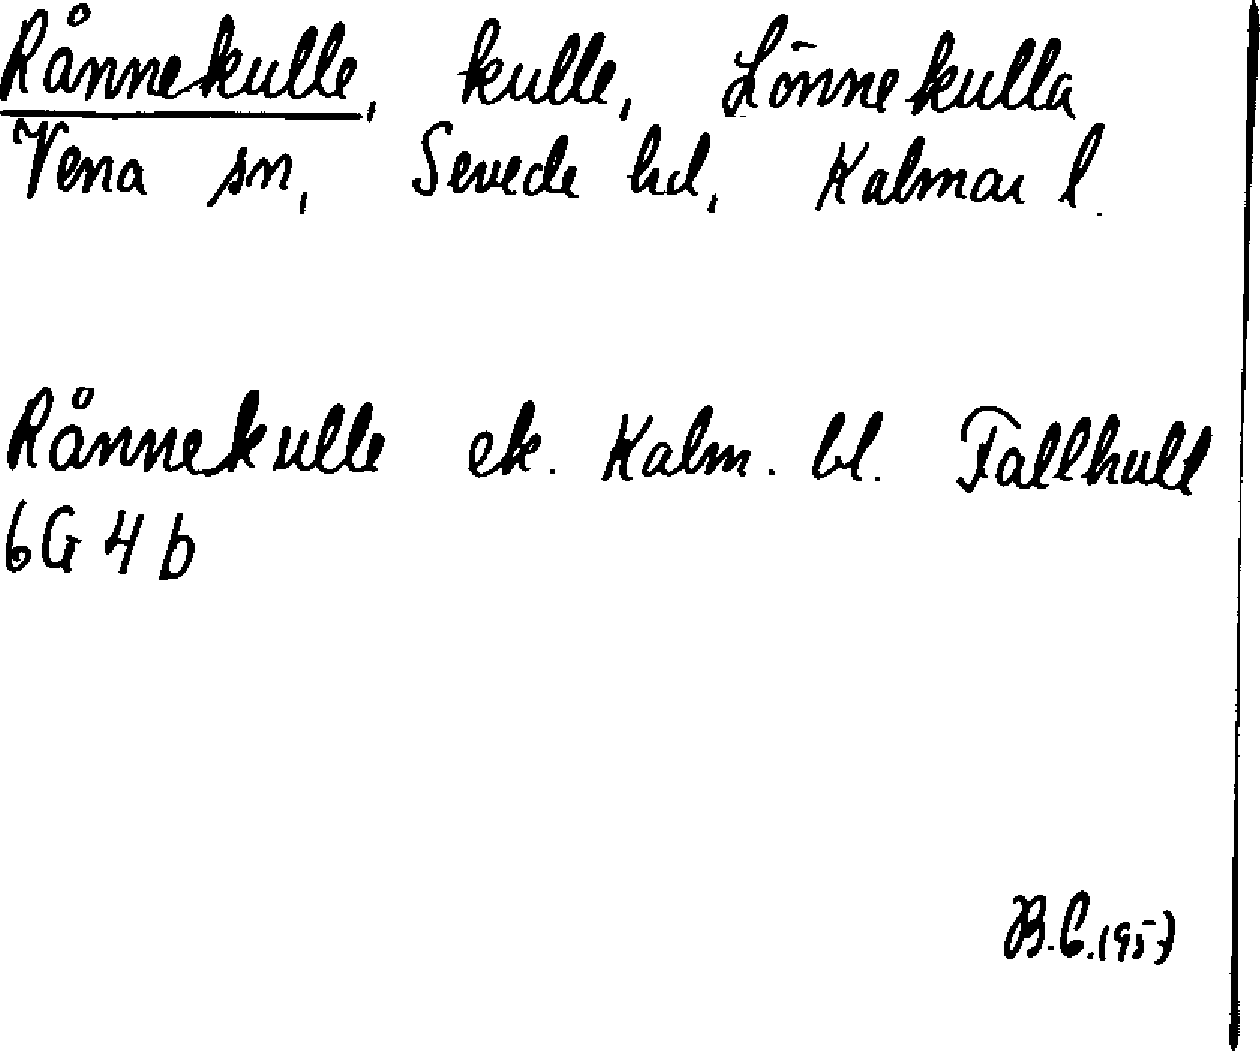 Rånnekulle, kulle, Lönnekulla
Vena sn, Sevede hd, Kalmar l.
Rånnekulle ek. Kalm. bl. Fallhult
6G 4 b
B.C. 1957